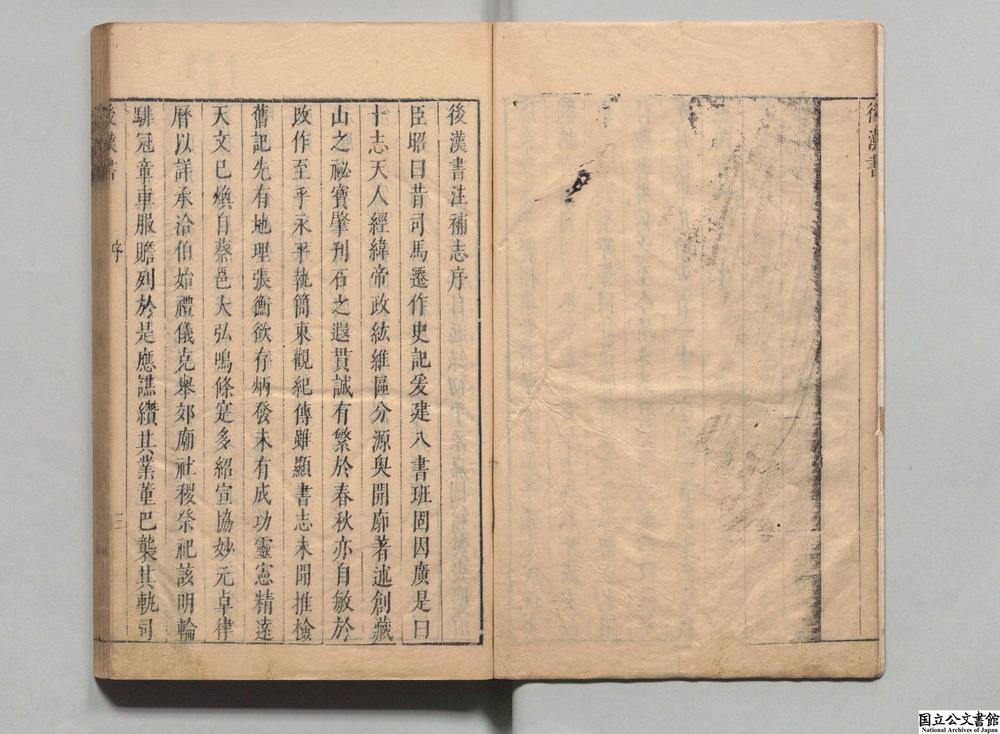 後漢書
後漢書注補志序
臣昭曰昔司馬遷作史記爰建八書班固因廣是曰
十志天人經緯帝政紘維區分源奧開廓著述創藏
山之祕寶肇刊石之遐貫誠有繁於春秋亦自敏於
改作至乎永平執簡東觀紀傳雖顯書志未聞推檢
舊記先有地理張衡欲存炳發未有成功靈憲精遠
天文已煥自蔡邕大弘鳴條寔多紹宣協妙元卓律
曆以詳承洽伯始禮儀克舉郊廟社稷祭祀該明輪
騑冠章車服贍列於是應譙纘其業董巴襲其軌司
後漢書 序 三
国立公文書館
National Archives of Japan